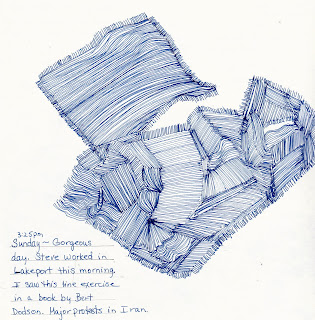 3:25pm
Sunday ~ Gorgeous
day. Steve worked in
Lakeport this morning.
I saw this line exercise
in a book by Bert
Dodson. Major protests in Iran.